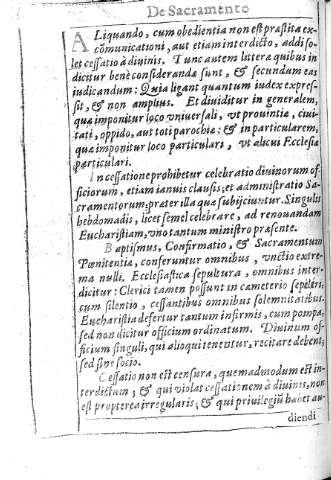 De Sacramento
ALiquando, cum obedientia non est præstita ex-
cōmunicationi, aut etiam interdicto, addi so-
let cessatio à diuinis. Tunc autem littera quibus in
dicitur benè consideranda sunt, & secundum eas
iudicandum: Quia ligant quantum iudex expres-
sit, & non amplius. Et diuiditur in generalem,
quæ imponitur loco vniuersali, vt prouintia, ciui-
tati, oppido, aut toti parochia: & in particularem,
quæ imponitur loco particulari, vt alicui Ecclesia
particulari.
In cessatione prohibetur celebratio diuinorum of-
ficiorum, etiam ianuis clausis; et administratio Sa-
cramentorum, præter illa quæ subijciuntur. Singulis
hebdomadis, licet semel celebrare, ad renouandam
Eucharistiam, vno tantum ministro præsente.
Baptismus, Confirmatio, & Sacramentum
Pœnitentia, conferuntur omnibus, vnctio extre-
ma nulli. Ecclesiastica sepultura, omnibus inter-
dicitur: Clerici tamen possunt in cæmeterio sepeliri,
cum silentio, cessantibus omnibus solemnitatibus.
Eucharistia defertur tantum infirmis, cum pompa,
sed non dicitur officium ordinatum. Diuinum of-
ficium singuli, qui alioqui tenentur, recitare debent,
sed sine socio.
Cessatio non est censura, quemadmodum est in-
terdictum; & qui violat cessationem à diuinis, non
est propterea irregularis; & qui priuilegiū habet au-
diendi